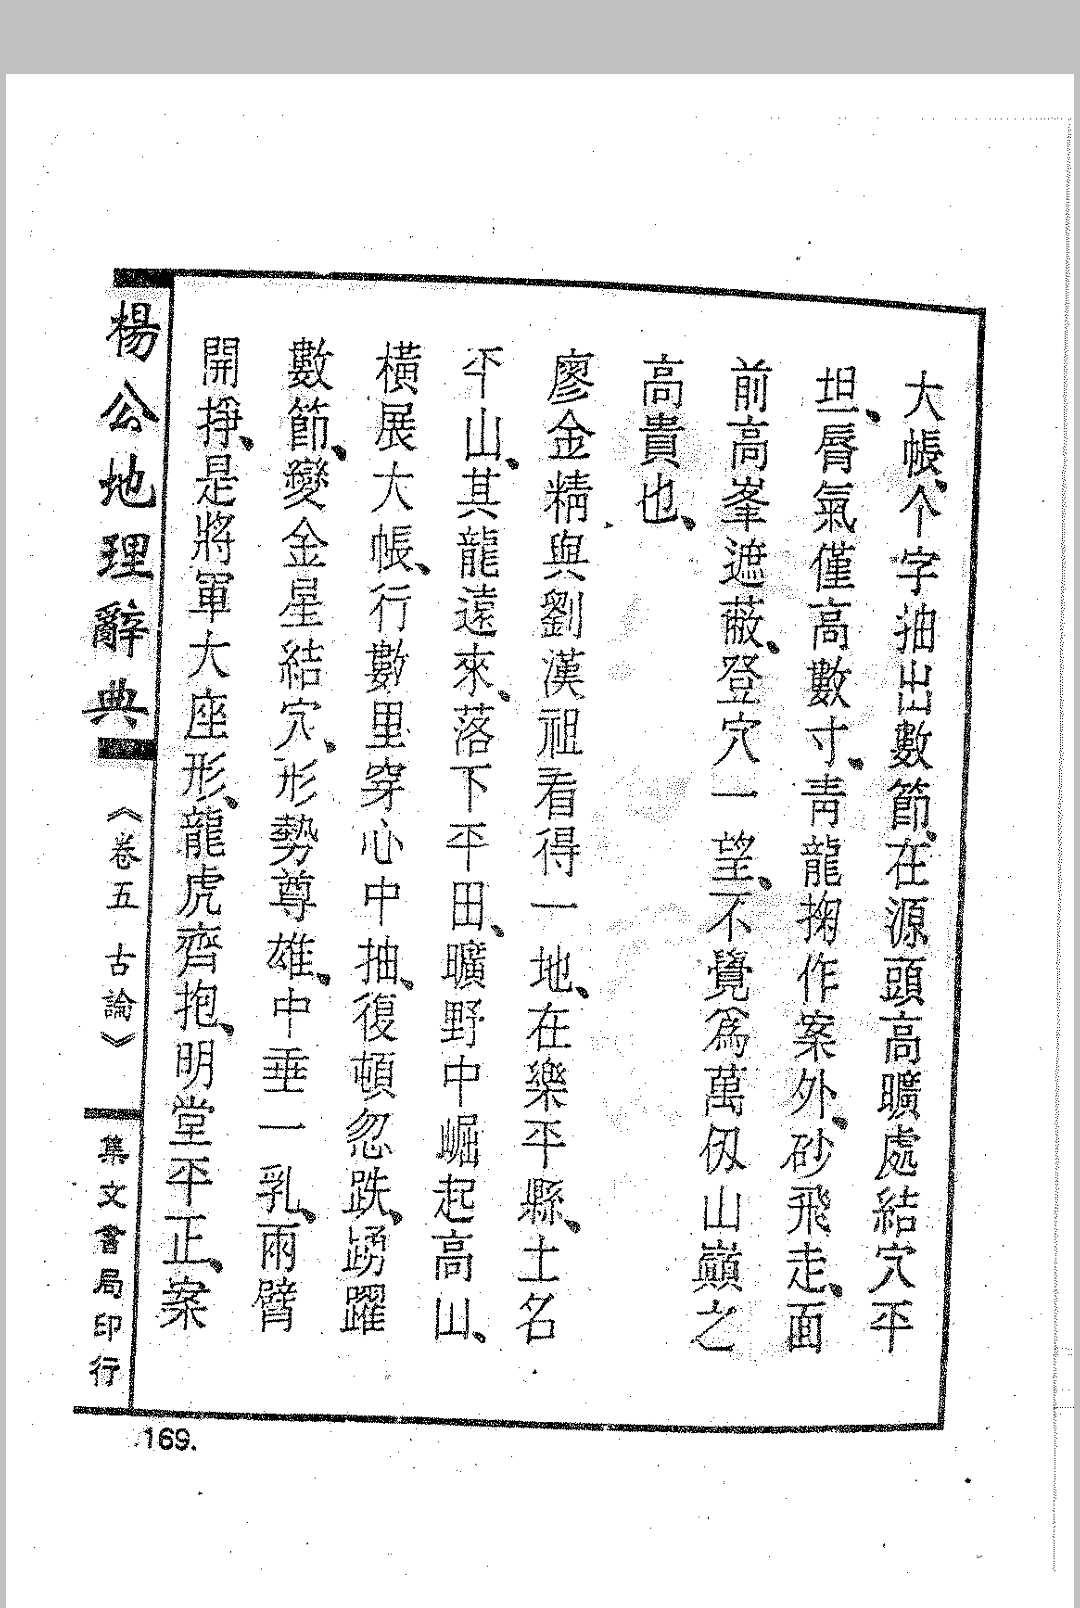 大帳、个字抽出數節、在源頭高曠處結穴平
坦、唇氣僅高數寸、青龍掬作案外、砂飛走、面
前高峯遮蔽、登穴一望、不覺為萬仭山巔之
高貴也、
廖金精與劉漢祖看得一地、在樂平縣、土名
平山、其龍遠來、落下平田、曠野中崛起高山、
橫展大帳、行數里穿心中抽、復頓忽跌、踴躍
數節、變金星結穴、形勢尊雄、中垂一乳、兩臂
開掙、是將軍大座形、龍虎齊抱、明堂平正、案
楊公地理辭典
《卷五 古論》
集文書局印行
169.